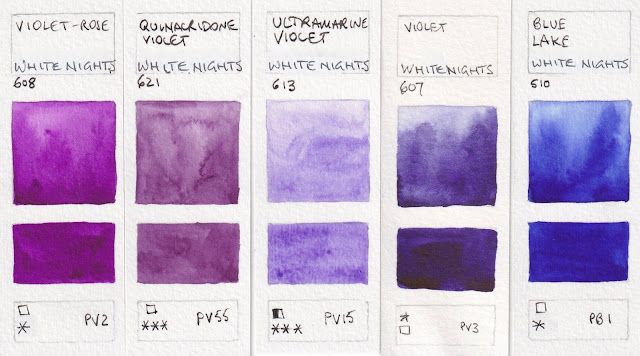 VIOLET-ROSE
WHITE NIGHTS
608
PV2
QUINACRIDONE
VIOLET
WHITE NIGHTS
621
*** PV55
ULTRAMARINE
VIOLET
WHITE NIGHTS
613
*** PV15
VIOLET
WHITE NIGHTS
607
*
PV3
BLUE
LAKE
WHITE NIGHTS
510
* PB1